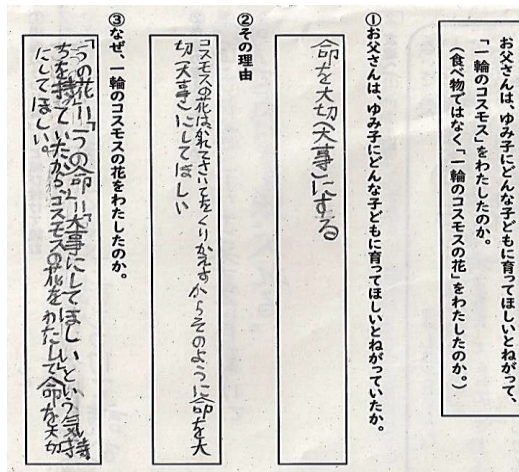 お父さんは、ゆみ子にどんな子どもに育ってほしいとねがって、
「一輪のコスモス」をわたしたのか。
(食べ物ではなく「一輪のコスモスの花」をわたしたのか。)
①お父さんは、ゆみ子にどんな子どもに育ってほしいとねがっていたか。
命を大切(大事)にする
②その理由
コスモスの花は、かれてさいてをくりかえすからそのように命を大
切(大事)にしてほしい
③なぜ、一輪のコスモスの花をわたしたのか。
「一つの花」=「一つの命」=「大事にしてほしい」という気持
ちを持っていたから、コスモスの花をわたして命を大切
にしてほしい。